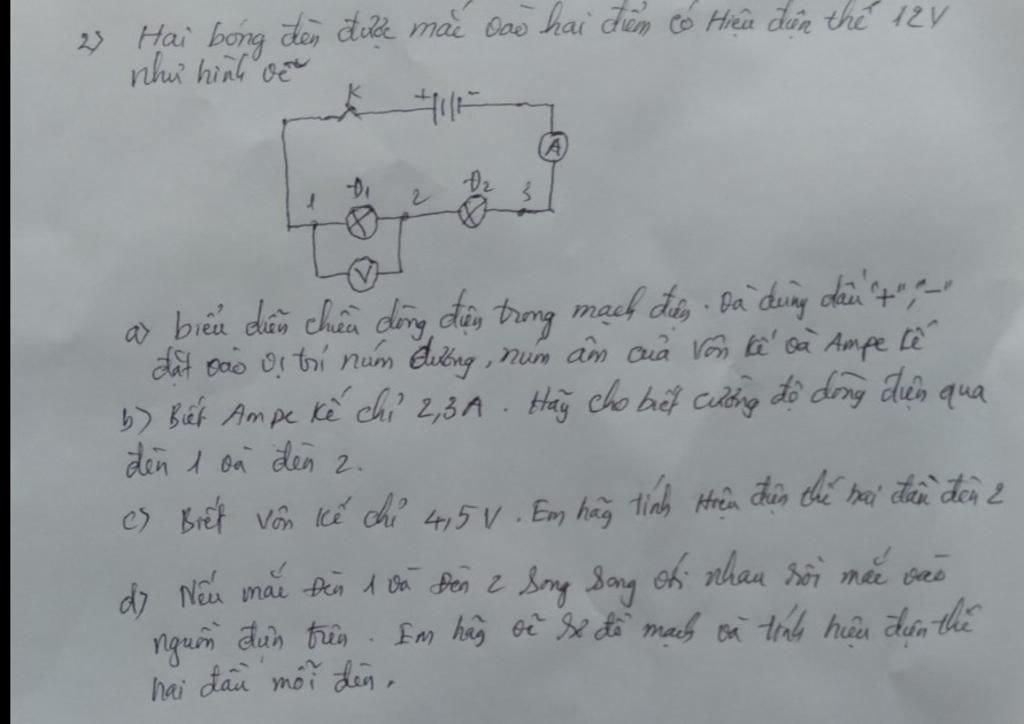 2) Hai bóng đèn được mắc vào hai điểm có Hiệu điện thế 12V
như hình vẽ
K
+ -
A
1 Đ1 2 Đ2 3
V
a) biểu diễn chiều dòng điện trong mạch điện. và dùng dấu "+", "-"
đặt vào vị trí núm dương, núm âm của Vôn kế và Ampe kế
b) Biết Ampe kế chỉ 2,3A. Hãy cho biết cường độ dòng điện qua
đèn 1 và đèn 2.
c) Biết Vôn kế chỉ 4,5V. Em hãy tính Hiệu điện thế hai đầu đèn 2
d) Nếu mắc Đèn 1 và Đèn 2 song song với nhau rồi mắc vào
nguồn điện trên. Em hãy vẽ sơ đồ mạch và tính hiệu điện thế
hai đầu mỗi đèn.